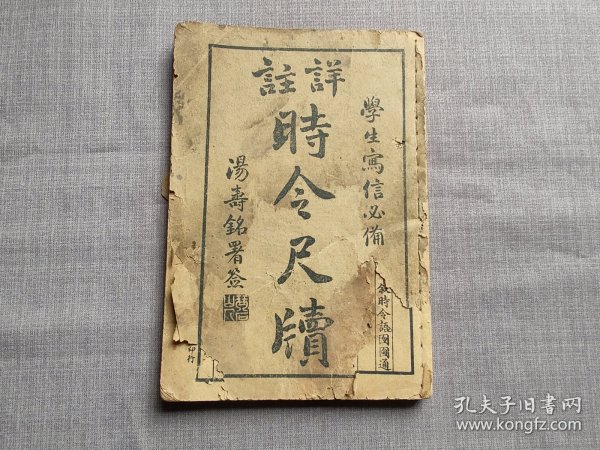 學生寫信必備
敘時令語
通
詳註
時令尺牘
湯壽銘署签
印行
孔夫子旧书网
www.kongfz.com